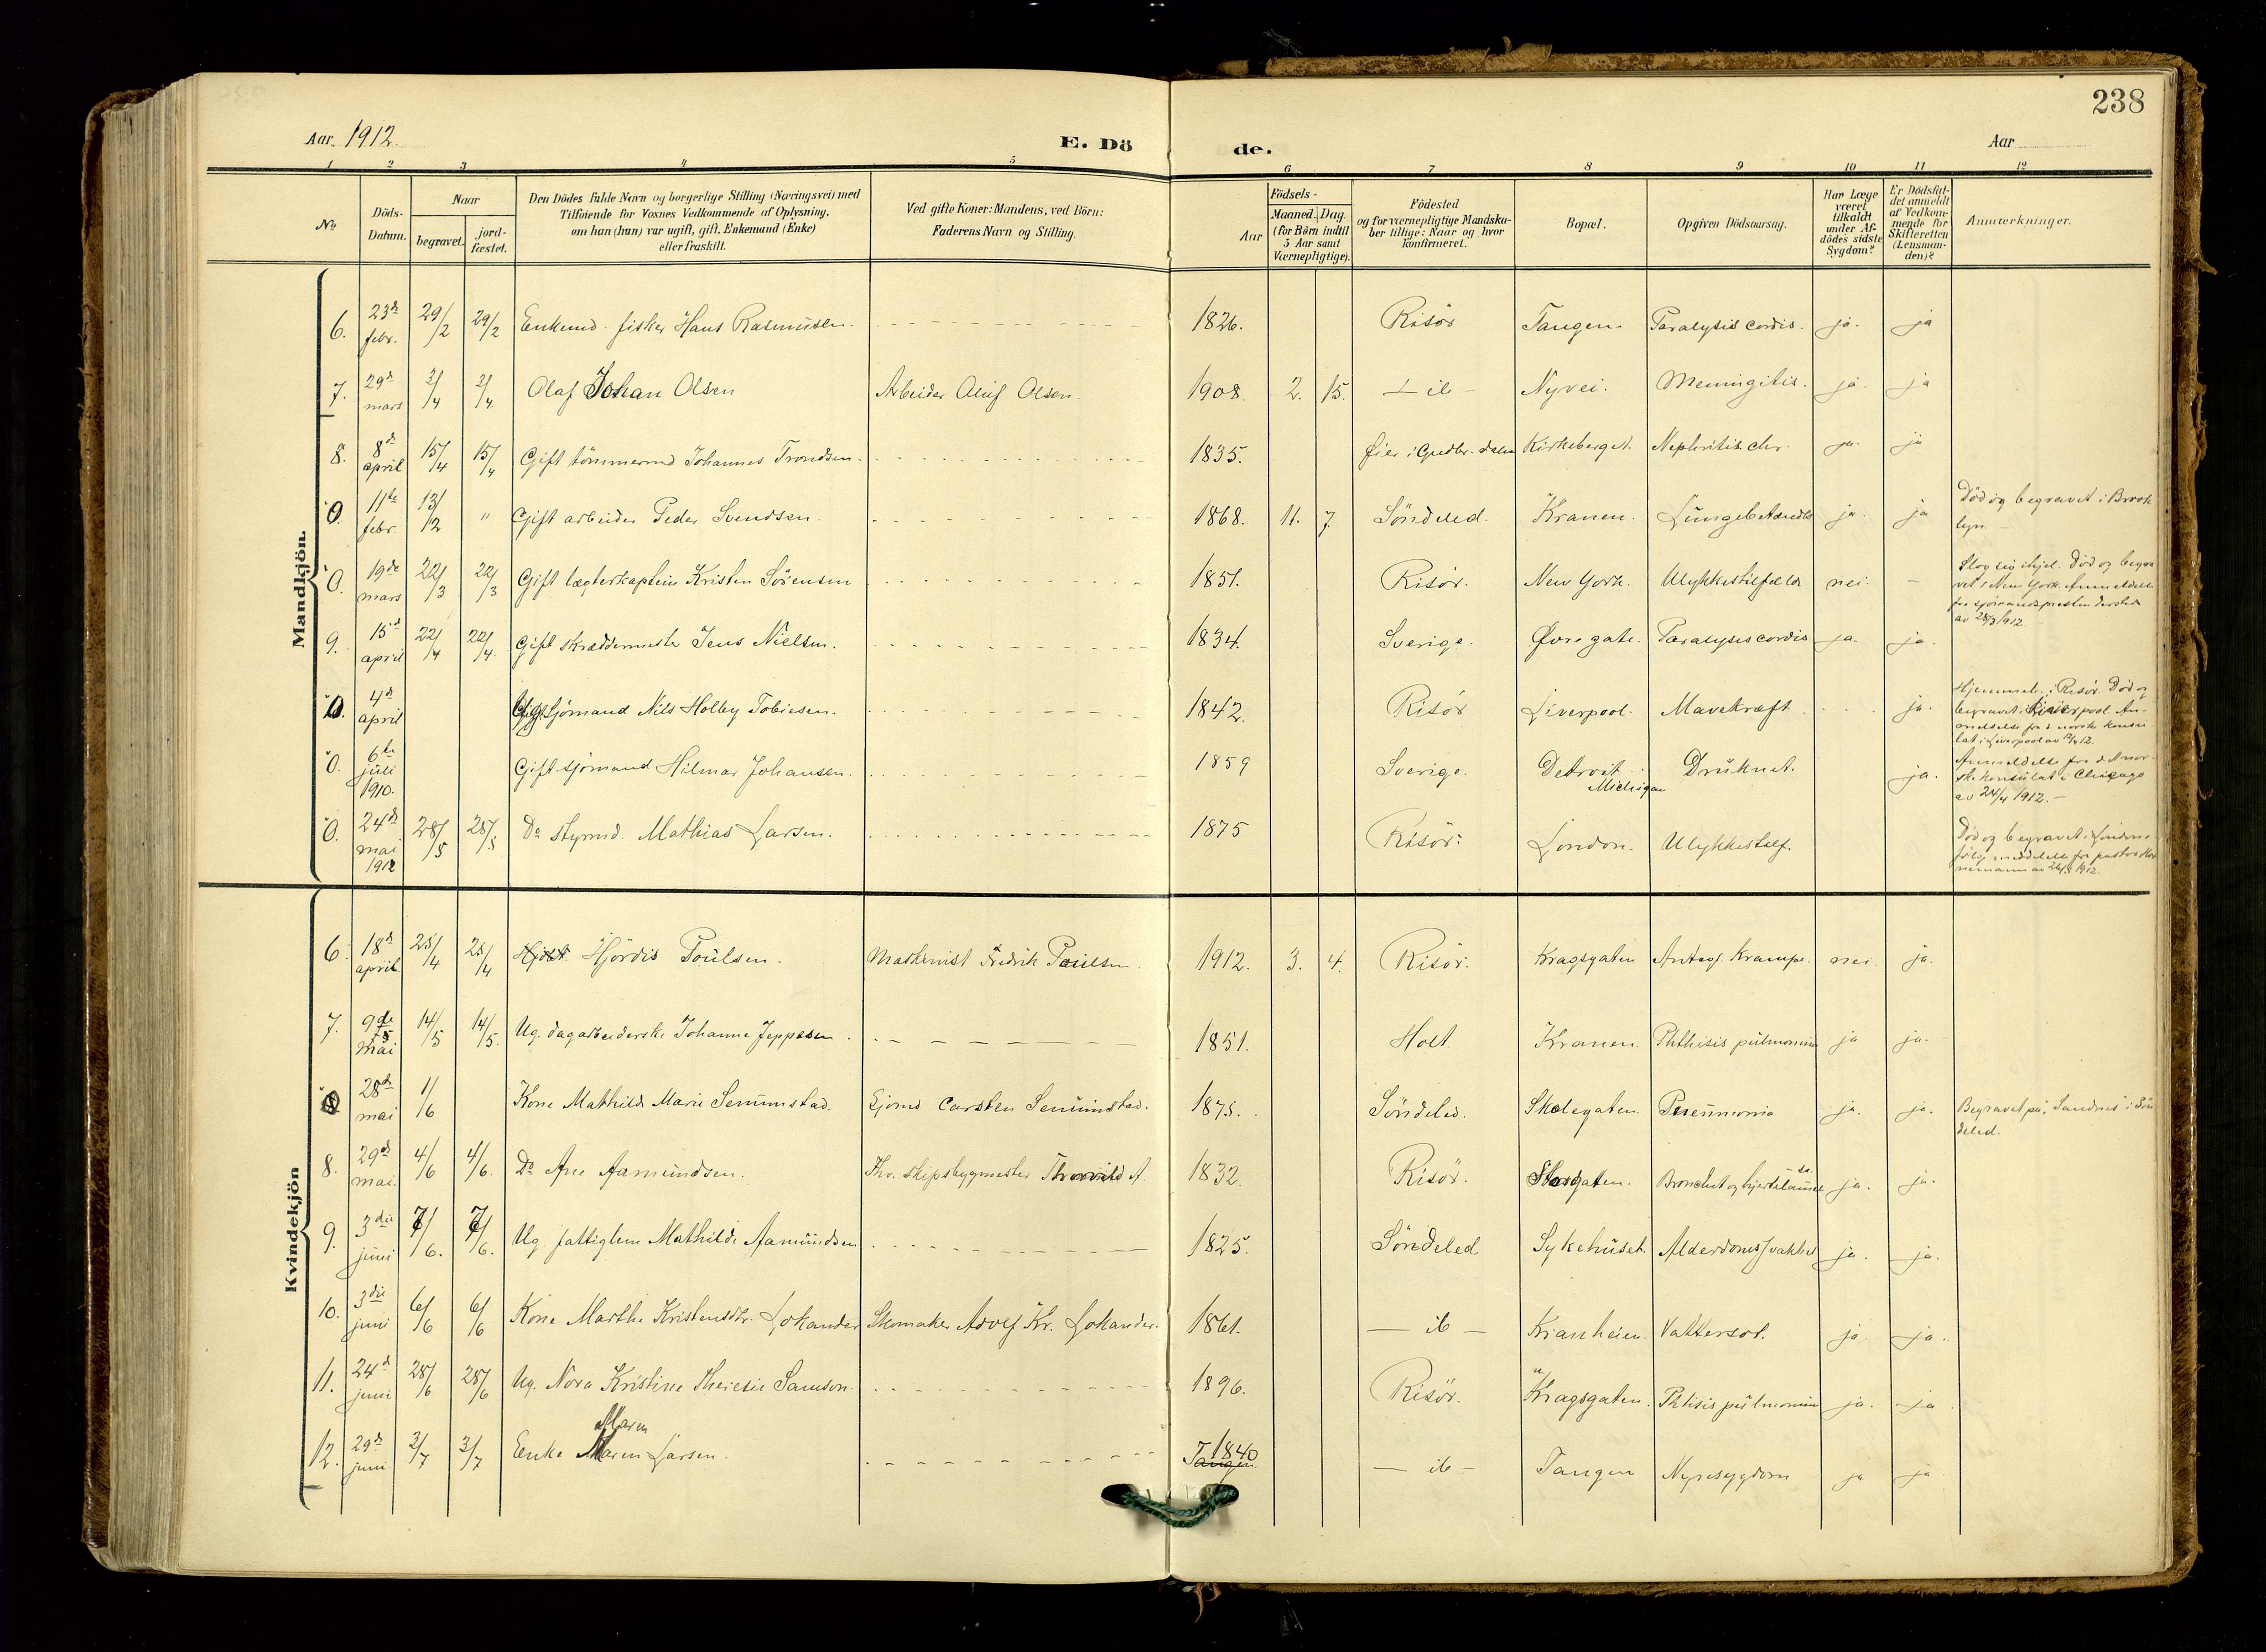 238
Aar 1912.
E. Dö de.
Aar
1 2 3 4 5 6 7 8 9 10 11 12
No
Döds-Datum.
Naar
begravet.
jordfæstet.
Den Dödes fulde Navn og borgerlige Stilling (Næringsvei) med
Tilföiende for Voxnes Vedkommende af Oplysning,
om han (hun) var ugift, gift, Enkemand (Enke)
eller fraskilt.
Ved gifte Koner: Mandens, ved Börn:
Faderens Navn og Stilling.
Födsels-
Aar
Maaned. Dag.
(for Börn indtil
5 Aar samt
Værnepligtige).
Födested
og for værnepligtige Mandska-
ber tillige: Naar og hvor
konfirmeret.
Bopæl.
Opgiven Dödsaarsag.
Har Læge
været
tilkaldt
under Af-
dödes sidste
Sygdom?
Er Dödsfal-
det anmeldt
af Vedkom-
mende for
Skifteretten
(Lensman-
den)?
Anmærkninger.
Mandkjön.
6. 23d febr. 29/2 29/2 Enkemd. fisker Hans Rasmussen. 1826. Risör Tangen. Paralysis cordis. ja. ja
7. 29d mars 2/4 2/4 Olaf Johan Olsen Arbeider Oluf Olsen. 1908. 2. 15. — ib — Nyvei. Meningitis. ja. ja
8. 8d april 15/4 15/4 Gift tömmermd Johannes Trondsen. 1835. Øier i Gudbr. dalen Kirkeberget. Nephritis chr. ja. ja
0. 11te febr. 13/2 " Gift arbeider Peder Svendsen. 1868. 11. 7. Söndeled. Kranen. Lungebetændls ja. ja Död og begravet i Brook
lyn.
0. 19de mars 22/3 22/3 Gift lægterkaptein Kristen Sörensen 1851. Risör. New York. Ulykkestilfælde nei. — Slog sig ihjel. Död og begra
vet i New York. Anmeldelse
fra sjömandspresten dersteds
av 28/3 1912
9. 15d april 22/4 22/4. Gift skræddermester Jens Nielsen. 1834. Sverige. Øvregate. Paralysis cordis ja. ja.
0. 4d april Ug. Sjömand Nils Holby Tobiesen. 1842. Risör Liverpool. Mavekræft ja. Hjemmeh. i Risör. Död og
begravet i Liverpool. An-
meldelse fra d. norske konsu
lat i Liverpool av 12/4 12.
0. 6te juli 1910. Gift sjömand Hilmar Johansen. 1859 Sverige. Detroit Michigan Druknet. ja. Anmeldelse fra d. nor
ske konsulat i Chicago
av 24/4 1912. —
0. 24d mai 1912 28/5 28/5 Do styrmd. Mathias Larsen. 1875 Risör. London. Ulykkestilf. Död og begravet i London i
fölg meddelelse fra pastor
av 1912.
Kvindekjön
6. 18d april 25/4 25/4 Hjördis Poulsen. Maskinist Fredrik Paulsen. 1912. 3. 4. Risör. Kragsgaten Antagl. Krampe. nei. ja.
7. 9de mai 14/5 14/5. Ug. dagarbeiderske Johanne Jeppesen. 1851. Holt. Kranen. Phthisis pulmonum ja ja.
0. 28d mai 1/6 Kone Mathilde Marie Semmnstad. Sjömd Carsten Semmnstad. 1875. Söndeled. Skolegaten. Pneumonia ja. ja. Begravet på "Sandnes" i Sön
deled.
8. 29d mai. 4/6 4/6. Do Ane Aamundsen. Fhv. skipsbygmester Thorvald A. 1832. Risör. Storgaten. Bronchit og hjertelammelse ja. ja.
9. 3die juni 7/6. 7/6. Ug fattiglem Mathilde Aamundsen 1825. Söndeled Sykehuset. Alderdomssvakhet ja. ja.
10. 3die juni 6/6 6/6 Kone Marthe Kristensdtr. Lokander Skomaker Adolf Kr. Lokander. 1861. — ib — Kranheien. Vattersot. ja. ja.
11. 24d juni 28/6 28/6 Ug. Nora Kristine Theresie Samson. 1896. Risör. Kragsgaten. Phtisis pulmonum ja. ja
12. 29d juni. 3/7 3/7 Enke Maren Maren Larsen. 1840 Tangen. — ib — Tangen Nyresygdom ja ja